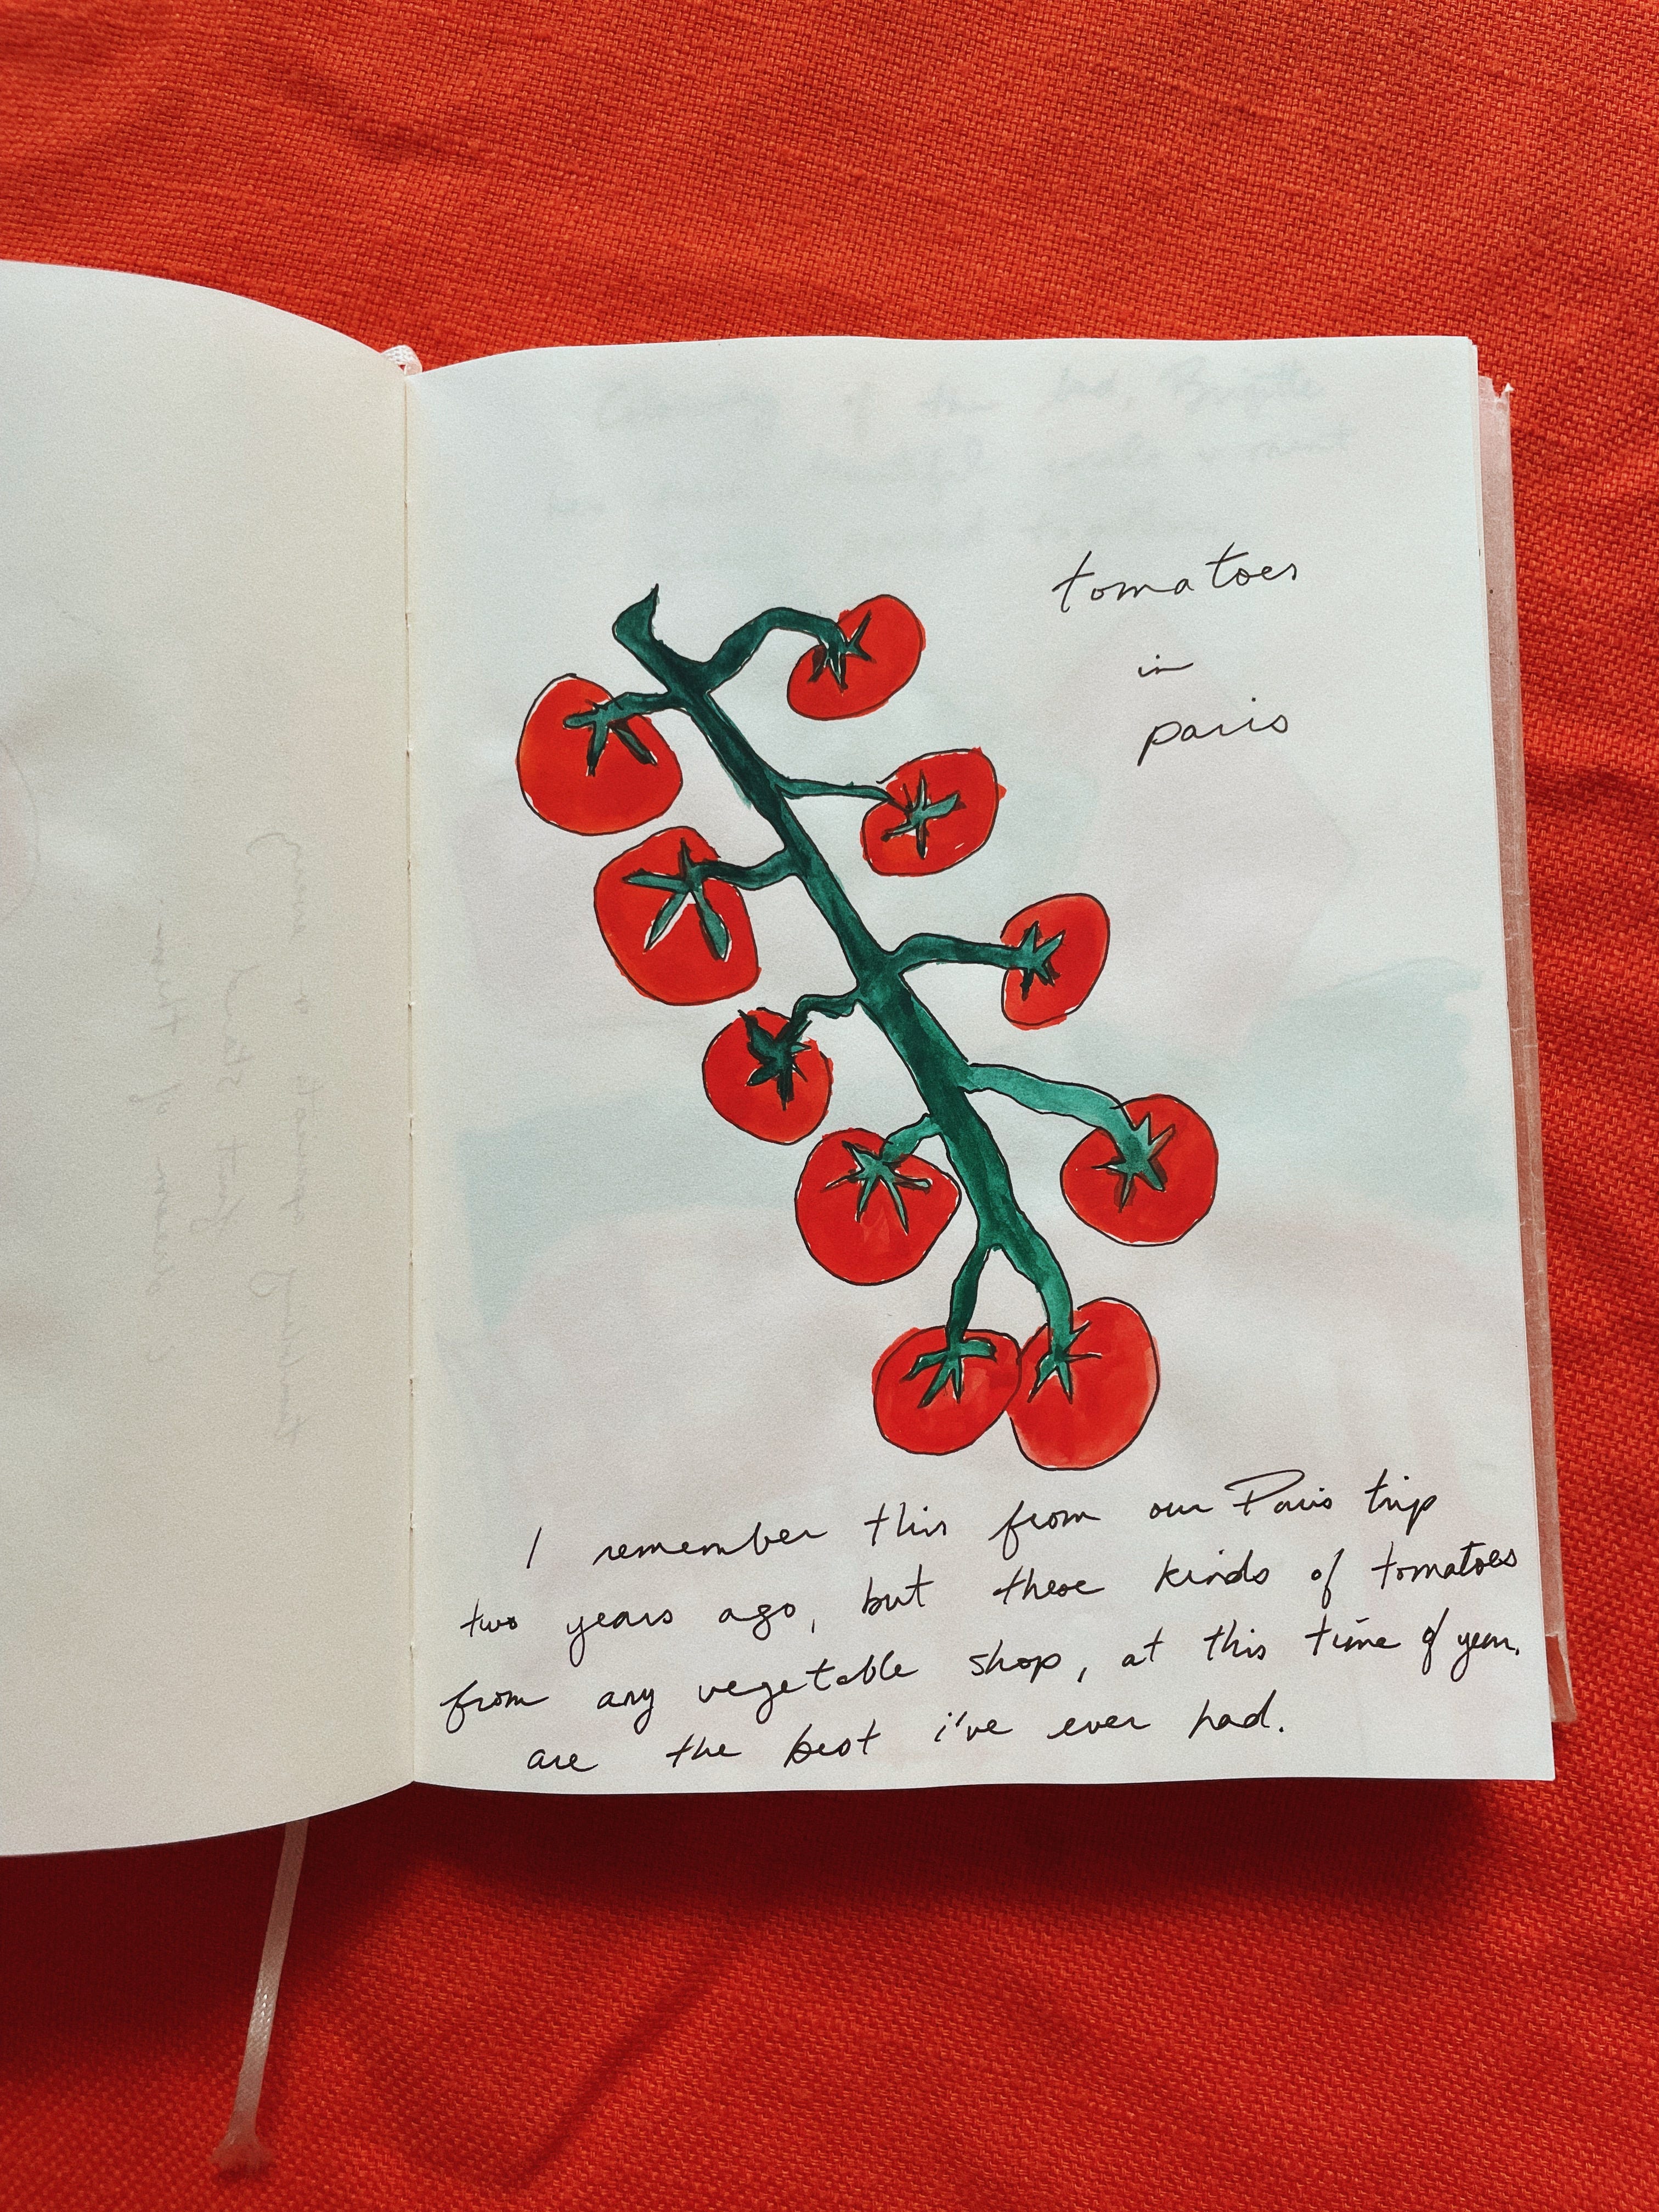 tomatoes
in
paris
I remember this from our Paris trip
two years ago, but these kinds of tomatoes
from any vegetable shop, at this time of year,
are the best i've ever had.